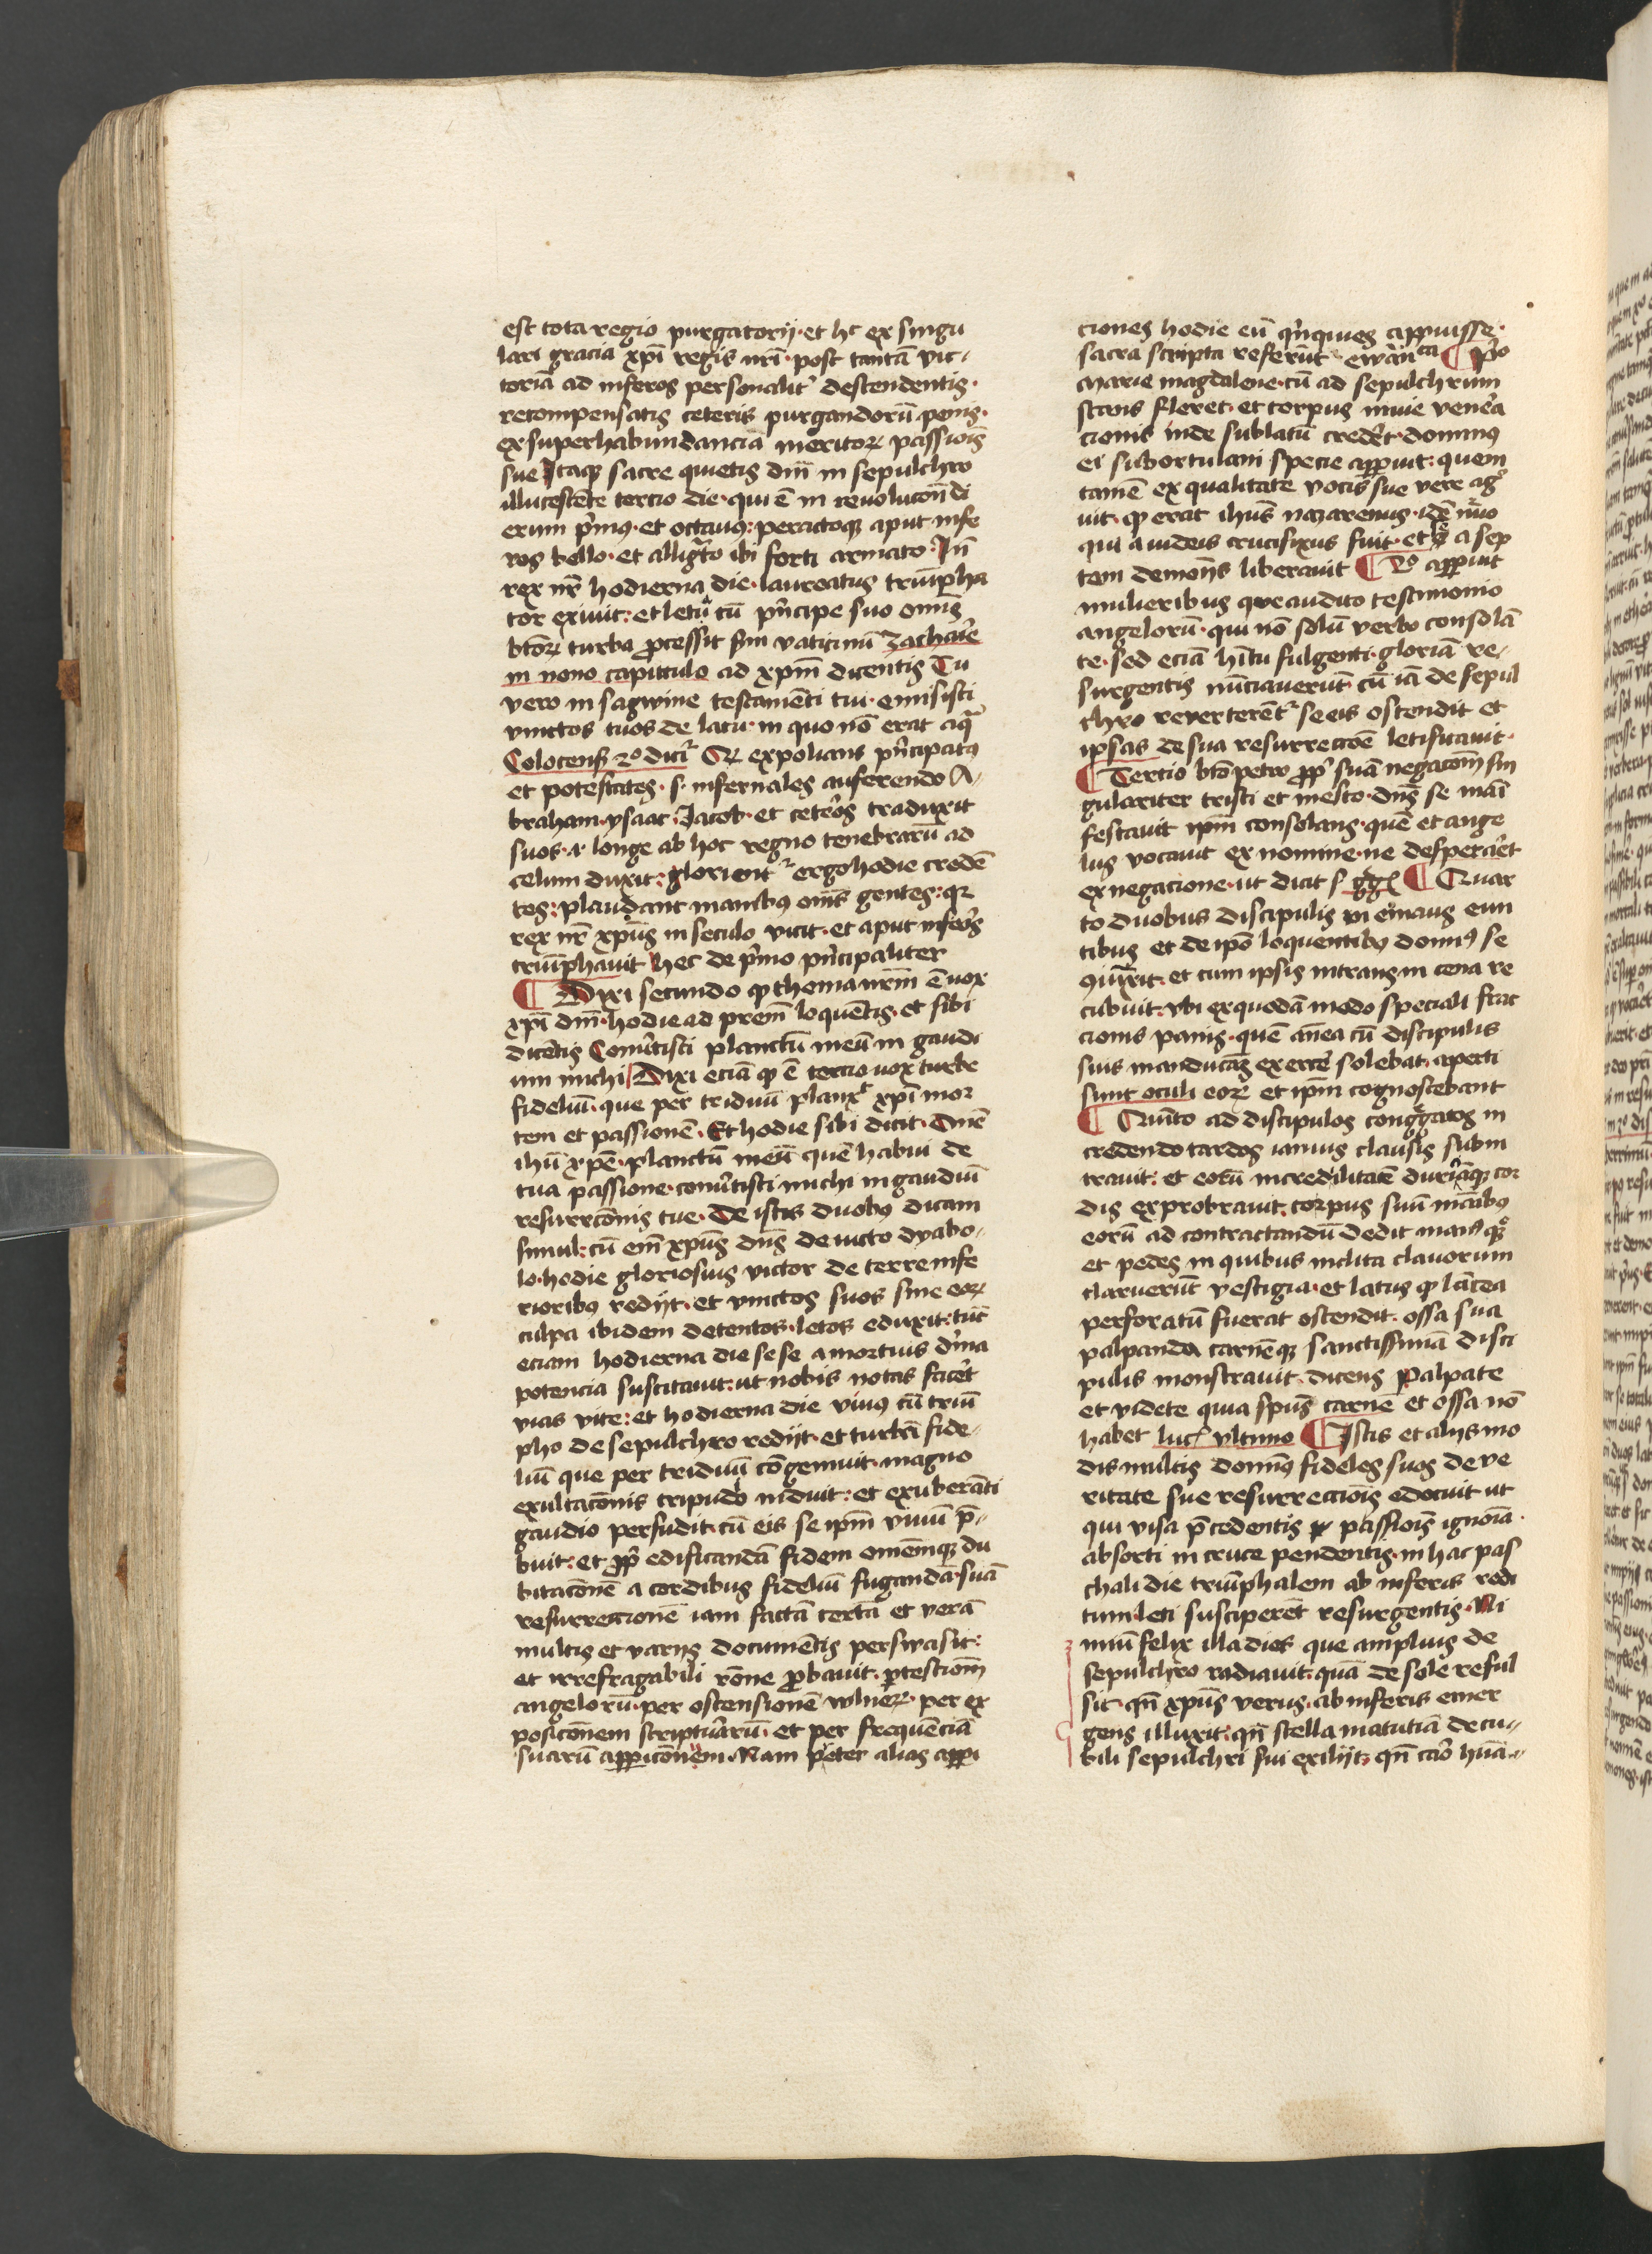 est tota regio purgatorij · et hc ex singu
lari gracia xpi regis nrī · post tantā vic-
toriā ad inferos personalit descendentis ·
recompensatis ceteris purgandorū penis ·
ex superhabundancia meritoꝝ passiois
sue Itaqꝫ sacre quietis dm̄ in sepulchro
illucescēte tercio die · qui ē in revolucōn di
erum pͥmus · et octauus : peractoqꝫ aput infe
ros bello · et alligato ibi forti armato · In̄
rex nr̄ hodierna die · laureatus triūpha
tor exiuit : et letā cū pͥncipe suo omis
btōꝝ turba ꝓcessit sm̄ vaticinū zacharie
in nono capitulo ad xpm̄ dicentis Tu
vero in sagwine testamēti tui · emisisti
vinctos tuos de lacu · in quo nō erat aqua
Colocens̄ 2º dicit Qꝝ expolians pͥncipatus
et potestates · s · infernales auferendo A-
braham · ysaac · Jacob · et ceteros traduxit
suos · ⁊ longe ab hoc regno tenebrarū ad
celum duxit : glorient ergo hodie credē
tes : plaudant manibꝰ om̄s gentes : qꝛ
rex nr̄ xpūs in seculo vicit · et aput inferos
triūphauit hec de pͥmo pͥncipaliter
¶ Dixi secundo ꝙ thema nrm̄ ē uox
xpī dm̄ · hodie ad prem̄ loquētis · et sibi
dicētis Conūtisti planctū meū in gaudi
um michi Dixi eciā ꝙ ē tercio uox turbe
fideliū · que per triduū planx͛ xpi mor
tem et passionē · Et hodie sibi dicit · Dn̄e
ihū xpē · planctū meū quē habui de
tua passione · conūtisti michi in gaudiū
resurrcōnis tue · De istis duobus dicam
simul : cū em̄ xpūs dn̄s deuicto dyabo-
lo · hodie gloriosius victor de terre infe
rioribꝰ redijt · et vinctos suos sine eoꝝ
culpa ibidem detentos · letos eduxit : tūc
eciam hodierna die sese a mortuis dīna
potencia suscitauit : ut nobis notas facēt
vias vite : et hodierna die viuꝰ cū triū
pho de sepulchro redijt · et turbā fide-
liū que per triduū cōgemuit · magno
exultacōnis tripudio induit : et exuberāti
gaudio perfudit · cū eis se ipm̄ viuū p̄-
buit : et ꝓpͥ edificandā fidem omēmqꝫ du
bitacōnē a cordibus fideliū fugandā · suā
resurrectionē iam factā certā et verā
multis et varijs documētis perswasit :
et irrefragabili rōne ꝓbauit · ꝓtestiom̄
angelorū · per ostensionē wlnerꝝ · per ex
posicōnem scripturarū · et per frequēciā
suarū appicōnem · Nam preter alias appi
ciones hodie eū qͥnquies appuisse ·
sacra scripta referūt · ewān ca ¶ pͥo
Marie magdalene · cū ad sepulchrum
stans fleret · et corpus mire venera
cionis inde sublatū crederet · dominus
ei sub ortulani specie appuit : quem
tamē ex qualitate vocis sue vere ago
uit · ꝙ erat ihūs nazarenus · idē nūo
qui a iudeis crucifixus fuit · et a sep
tem demonijs liberauit ¶ 2º appuit
mulieribus que audito testimonio
angelorū · qui nō solū verbo consolā
te · sed eciā hītu fulgenti · gloriā re-
surgentis nūciauerūt · cū iā de sepul
chro reverterēt · se eis ostendit et
ipsas de sua resurrectōe letificauit ·
¶ Tercio btō petro ꝓpͥ suā negacōnē sin
gulariter tristi et mesto · dn̄s se mani
festauit ipm̄ consolans · quē et ange
lus vocauit ex nomine · ne desperaret
ex negacione · ut dicit s ggͥ ¶ Quar
to duobus discipulis in emaus eun
tibus et de ipō loquentibꝰ dominꝰ se
9iūxit · et cum ipsis intrans in cena re
cubuit · vbi ex quodā modo speciali frac
cionis panis · quē an̄ea cū discipulis
suis manducās exercē solebat · aperti
sunt oculi eoꝝ et ipm̄ cognoscebant
¶ Quīto ad discipulos congͣgatos in
credendo tardos ianuis clausis subin
trauit : et eorū incredulitatē duriciāqꝫ cor
dis exprobrauit · corpus suū manibꝰ
eorū ad contractandū dedit manꝰ qꝫ
et pedes in quibus inclita clauorum
claruerūt vestigia · et latus ꝙ lācea
perforatū fuerat ostendit · ossa sua
palpanda carnēqꝫ sanctissimā disci
pulis monstrauit · dicens Palpate
et videte quia spūs carnē et ossa nō
habet luc̄ vltimo ¶ Istis et alijs mo
dis multis dominꝰ fideles suos de ve
ritate sue resurrectiois edocuit ut
qui visa p̄cedentis passiois ignoīa ·
absorti in cruce pendentis · in hac pas
chali die triūphalem ab inferis redi
tum leti susciperet resurgentis · Ni
miū felix illa dies que amplius de
sepulchro radiauit · quā de sole reful
sit · qn̄ xpūs verus · ab inferis emer
gens illuxit · qn̄ stella matutiā de cu-
bili sepulchri sui exilijt · qn̄ caro huā-